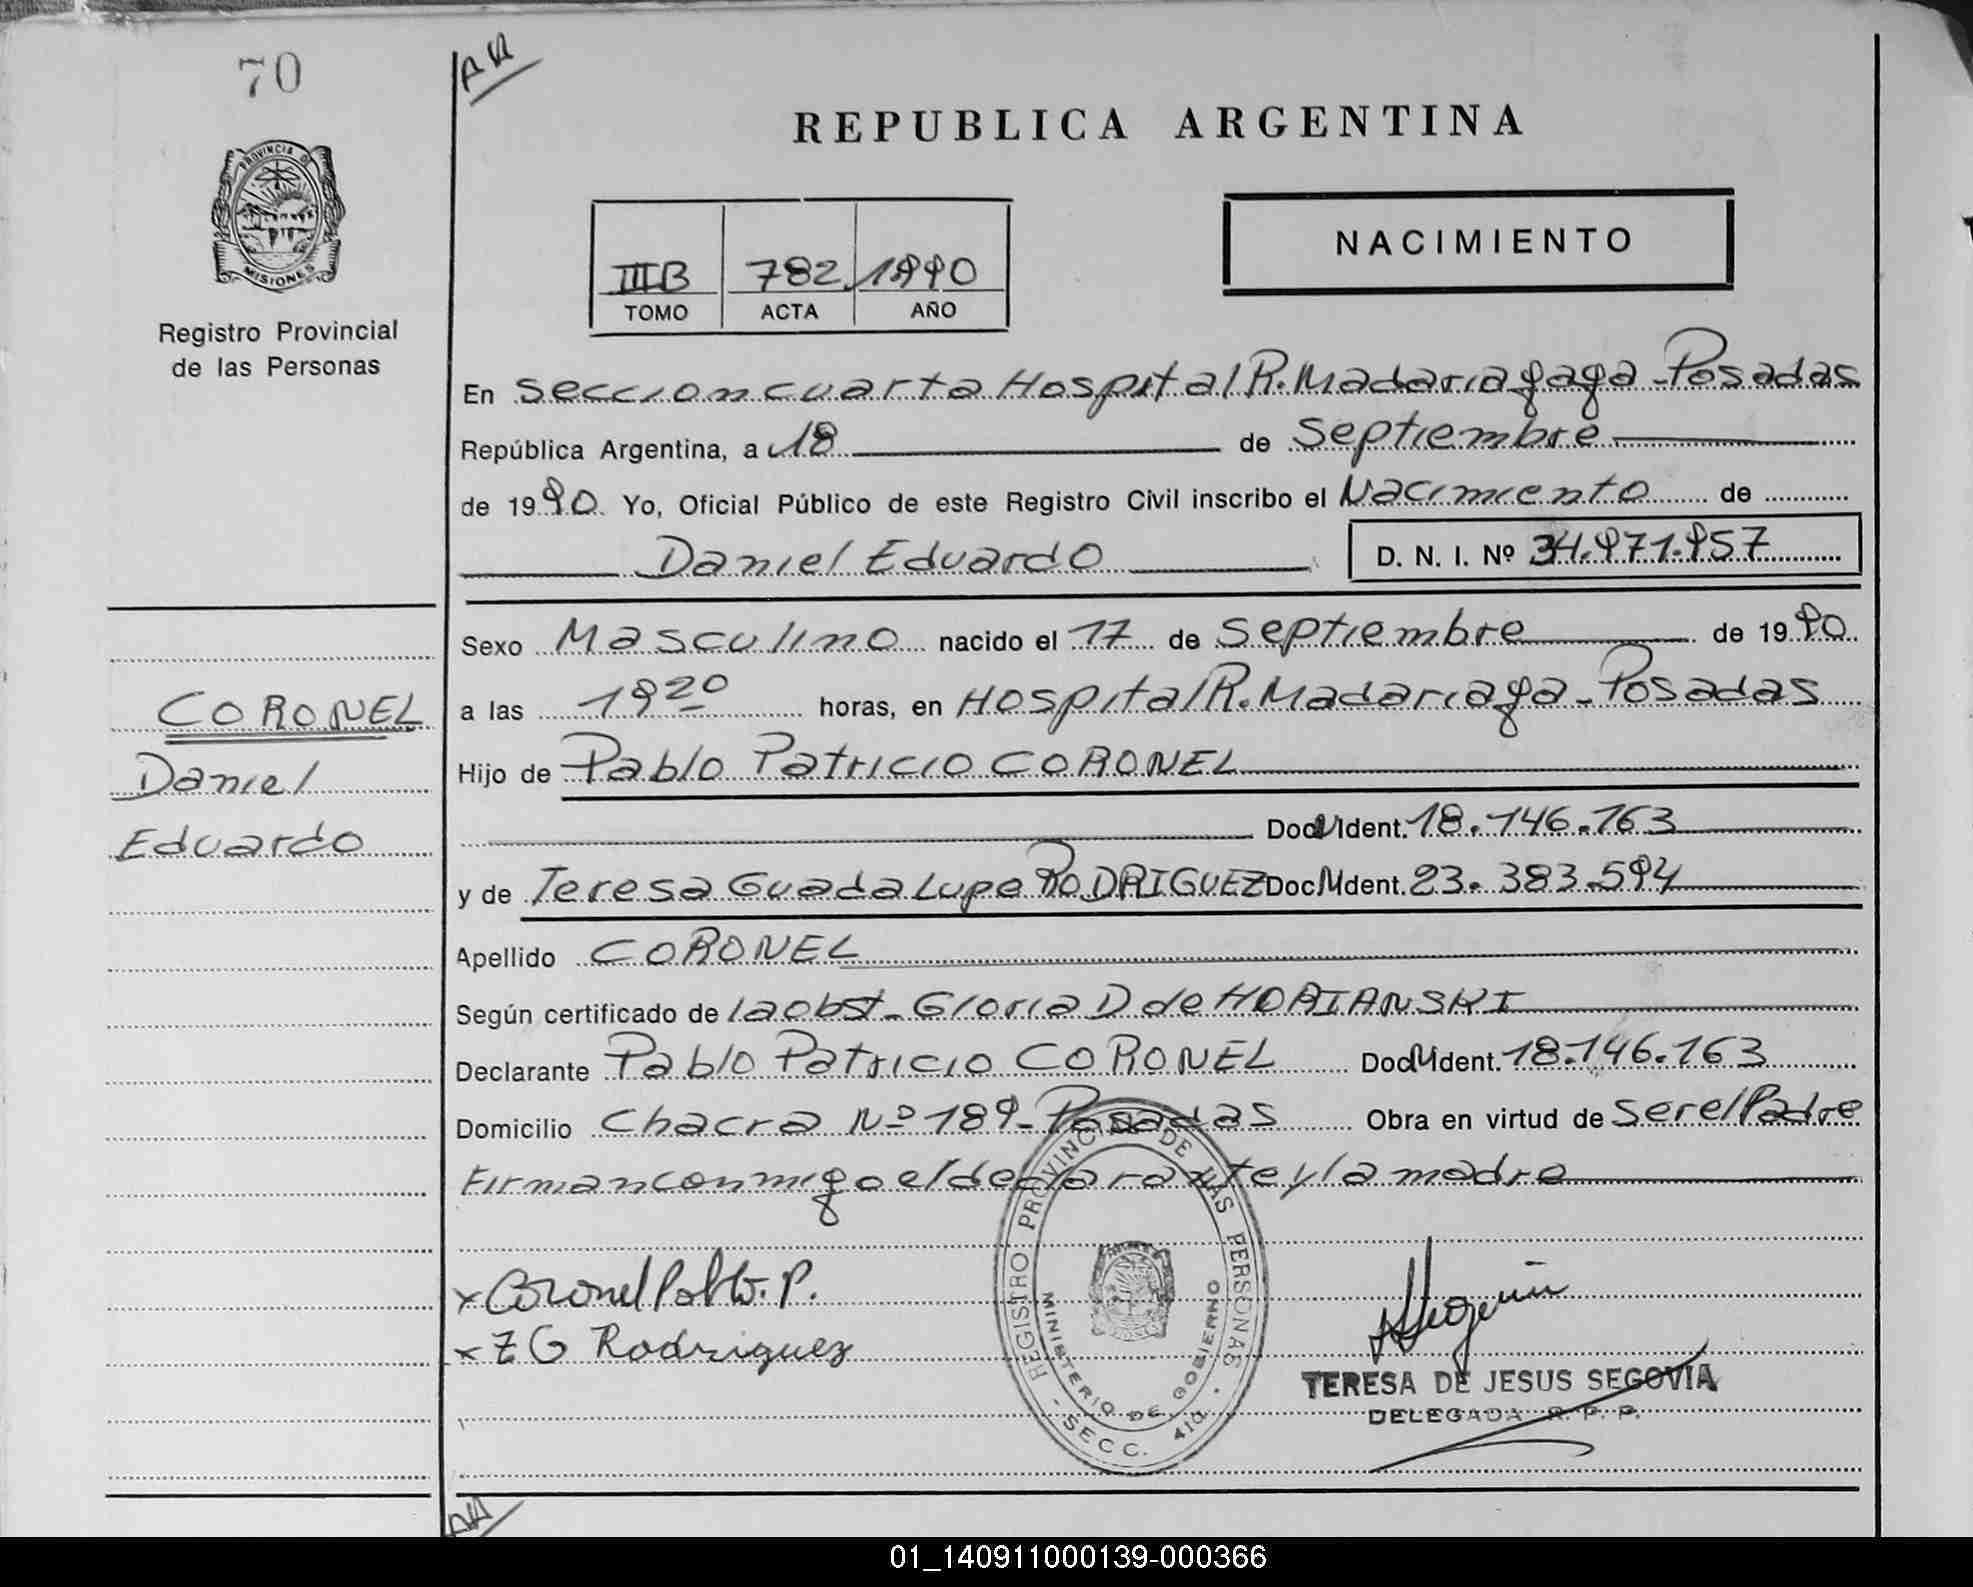 70
AA
REPUBLICA ARGENTINA
PROVINCIA DE
MISIONES
Registro Provincial
de las Personas
NACIMIENTO
IIIB 782 1990
TOMO ACTA AÑO
En Seccion cuarta Hospital R. Madariagaga - Posadas
República Argentina, a 18 de Septiembre
de 1990 Yo, Oficial Público de este Registro Civil inscribo el Nacimiento de
Daniel Eduardo D. N. I. Nº 34.971.957
Sexo Masculino nacido el 17 de Septiembre de 1990
CORONEL
Daniel
Eduardo
a las 19 20 horas, en Hospital R. Madariaga - Posadas
Hijo de Pablo Patricio CORONEL
Doc Ident. 18.146.163
y de Teresa Guadalupe RODRIGUEZ Doc Ident. 23.383.594
Apellido CORONEL
Según certificado de la obst. Gloria D de HORIANSKI
Declarante Pablo Patricio CORONEL Doc Ident. 18.146.163
Domicilio Chacra Nº 189 - Posadas Obra en virtud de ser el Padre
Firman conmigo el declarante y la madre
x Coronel Pablo. P.
x T G Rodriguez
REGISTRO PROVINCIAL DE LAS PERSONAS
MINISTERIO DE GOBIERNO
- SECC. 4ta. -
TERESA DE JESUS SEGOVIA
DELEGADA R. P. P.
AA
01_140911000139-000366